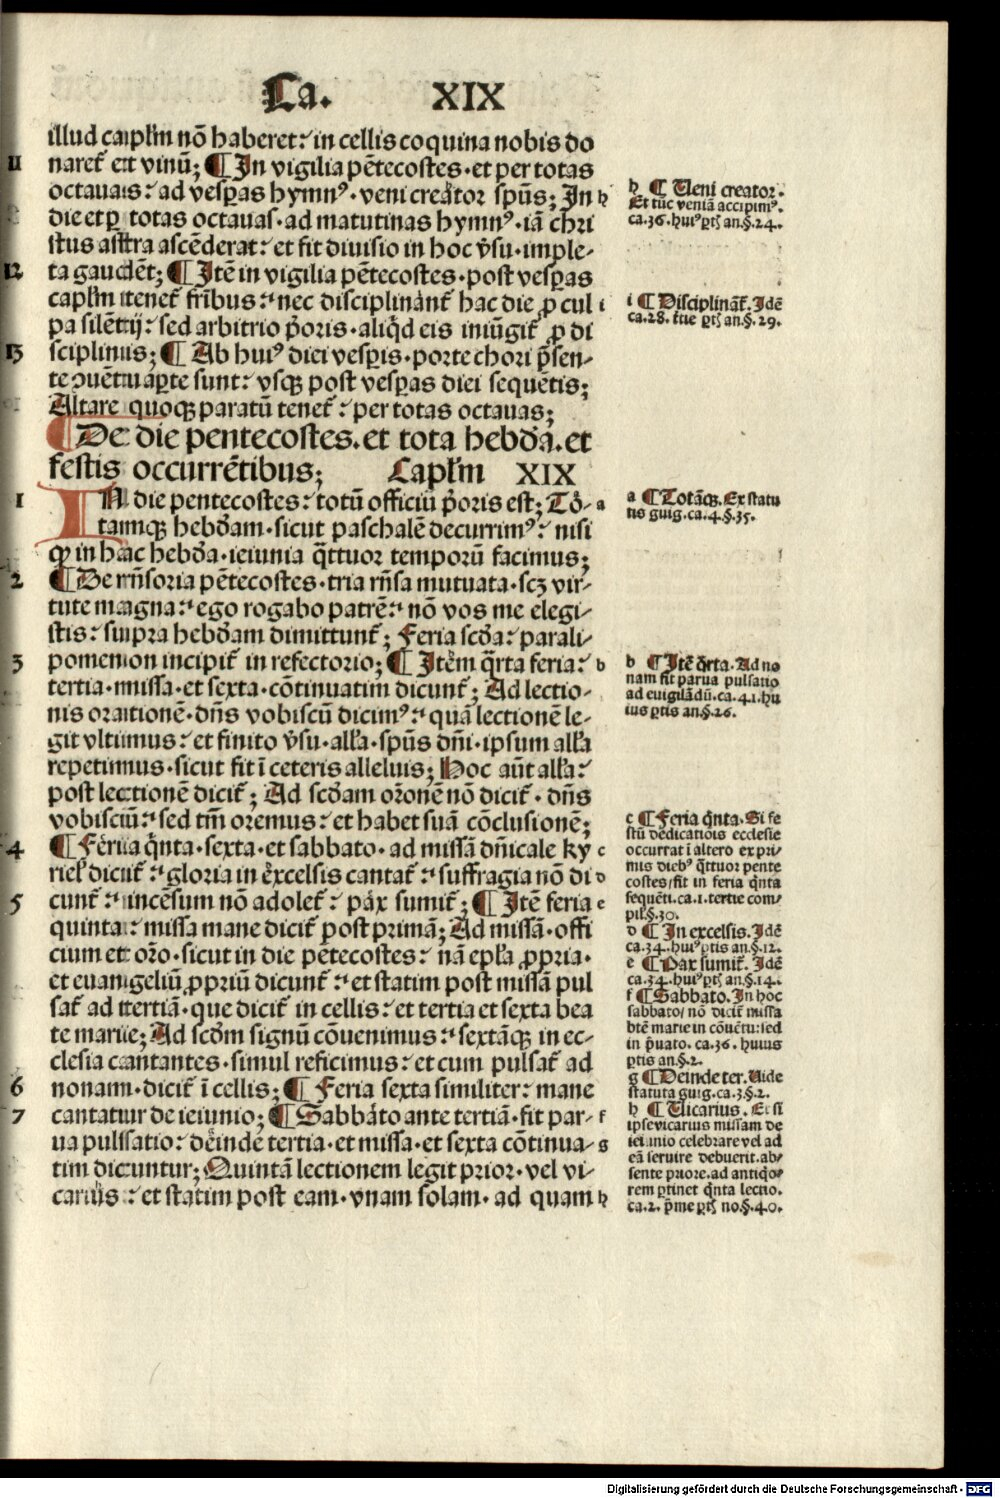 Ca. XIX
illud cap̄lm nō haberet: in cellis coquina nobis do
11 naret᷑ et vinū; ¶ In vigilia pētecostes · et per totas
octauas: ad vesꝑas hymnꝰ · veni creator spūs; In h
die et ꝑ totas octauas · ad matutinas hymnꝰ · iā chri
stus astra ascēderat: et fit diuisio in hoc v̄su · imple-
12 ta gaudēt; ¶ Itē in vigilia pētecostes · post vesꝑas
cap̄lm tenet᷑ fr̄ibus: nec disciplinānt᷑ hac die ꝓ cul i
pa silētij: sed arbitrio p̄oris · aliq̄d eis iniūgit᷑ ꝓ di
13 sciplinis; ¶ Ab huiꝰ diei vesꝑis · porte chori p̄sen-
te ꝯuētu aꝑte sunt: vsqꝫ post vesꝑas diei sequētis;
Altare quoqꝫ paratū tenet᷑: per totas octauas;
¶ De die pentecostes. et tota hebd̄a. et
festis occurrētibus; Cap̄lm XIX
1 IN die pentecostes: totū officiū p̄oris est; To- a
tamqꝫ hebd̄am · sicut paschalē decurrimꝰ: nisi
ꝙ in hac hebd̄a · ieiunia q̄ttuor temporū facimus;
2 ¶ De rn̄soria pētecostes · tria rn̄sa mutuata · scꝫ vir-
tute magna: ego rogabo patrē: nō vos me elegi-
stis: supra hebd̄am dimittunt᷑; Feria scd̄a: parali-
3 pomenon incipit᷑ in refectorio; ¶ Itēm q̄rta feria: b
tertia · missa · et sexta · cōtinuatim dicunt᷑; Ad lectio-
nis orationē · dn̄s vobiscū dicimꝰ: quā lectionē le-
git vltimus: et finito v̄su · all̄a · spūs dn̄i · ipsum all̄a
repetimus · sicut fit ī ceteris alleluis; Hoc aūt all̄a:
post lectionē dicit᷑; Ad scd̄am or̄onē nō dicit᷑ · dn̄s
vobiscū: sed tm̄ oremus: et habet suā cōclusionē;
4 ¶ Feria q̄nta · sexta · et sabbato · ad missā dn̄icale ky c
riel̄ dicit᷑: gloria in excelsis cantat᷑: suffragia nō di d
5 cunt᷑: incēsum nō adolet᷑: pax sumit᷑; ¶ Itē feria e
quinta: missa mane dicit᷑ post primā; Ad missā · offi
cium et or̄o · sicut in die pētecostes: nā epl̄a ꝓpria ·
et euangeliū ꝓpriū dicunt᷑: et statim post missā pul
sat᷑ ad tertiā · que dicit᷑ in cellis: et tertia et sexta bea
te marie; Ad scd̄m signū cōuenimus: sextāqꝫ in ec-
clesia cantantes · simul reficimus: et cum pulsat᷑ ad
6 nonam · dicit᷑ ī cellis; ¶ Feria sexta similiter: mane
7 cantatur de ieiunio; ¶ Sabbato ante tertiā · fit par- f
ua pulsatio: deinde tertia · et missa · et sexta cōtinua- g
tim dicuntur; Quintā lectionem legit prior · vel vi-
carius: et statim post eam · vnam solam · ad quam h
h ¶ Veni creator.
Et tūc veniā accipimꝰ.
ca.36. huiꝰ ꝑt̄ an.§.24.
i ¶ Disciplināt᷑. Idē
ca.28. an.§.29.
a ¶ Totāqꝫ. Ex statu
tis guig. ca.4.§.35.
b ¶ Itē q̄rta. Ad no
nam fit parua pulsatio
ad euigilādū. ca.41. hu
ius ꝑtis an.§.26.
c ¶ Feria q̄nta. Si fe
stū dedicatiōis ecclesie
occurrat ī altero ex pri-
mis diebꝰ q̄ttuor pente
costes/ fit in feria q̄nta
sequēti. ca.1. tertie com-
pil̄.§.30.
d ¶ In excelsis. Idē
ca.34. huiꝰ ꝑtis an.§.12.
e ¶ Pax sumit᷑. Idē
ca.34. huiꝰ ꝑt̄ an.§.14.
f ¶ Sabbato. In hoc
sabbato/ nō dicit᷑ missa
btē marie in cōuētu: sed
in p̄uato. ca.36. huius
ꝑtis an.§.2.
g ¶ Deinde ter. Vide
statuta guig. ca.3.§.2.
h ¶ Vicarius. Et si
ipse vicarius missam de
ieiunio celebrare vel ad
eā seruire debuerit. ab-
sente priore. ad antiqo-
rem ꝑtinet q̄nta lectio.
ca.2. p̄me ꝑt̄ no.§.40.
Digitalisierung gefördert durch die Deutsche Forschungsgemeinschaft · DFG